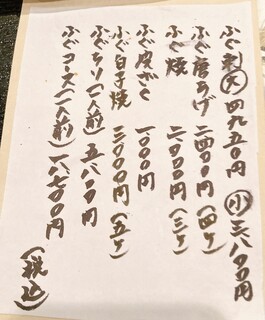 ふぐ刺 大 四九五〇円 小 三八〇〇円
ふぐ唐あげ 二四〇〇円(四ケ)
ふぐ焼 二〇〇〇円(三ケ)
ふぐ皮ポン 一〇〇〇円
ふぐ白子焼 三〇〇〇円(五ケ)
ふぐちり(一人前) 五八〇〇円
ふぐコース(一人前) 一八七〇〇円
(税込)